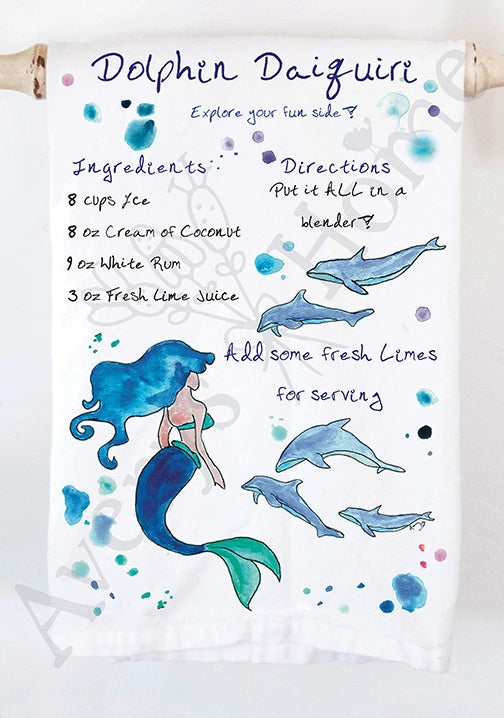 Dolphin Daiquiri
Explore your fun side!
Ingredients
8 cups Ice
8 oz Cream of Coconut
9 oz White Rum
3 oz Fresh Lime Juice
Directions
Put it ALL in a
blender!
Add some fresh Limes
for serving
Avery's Home